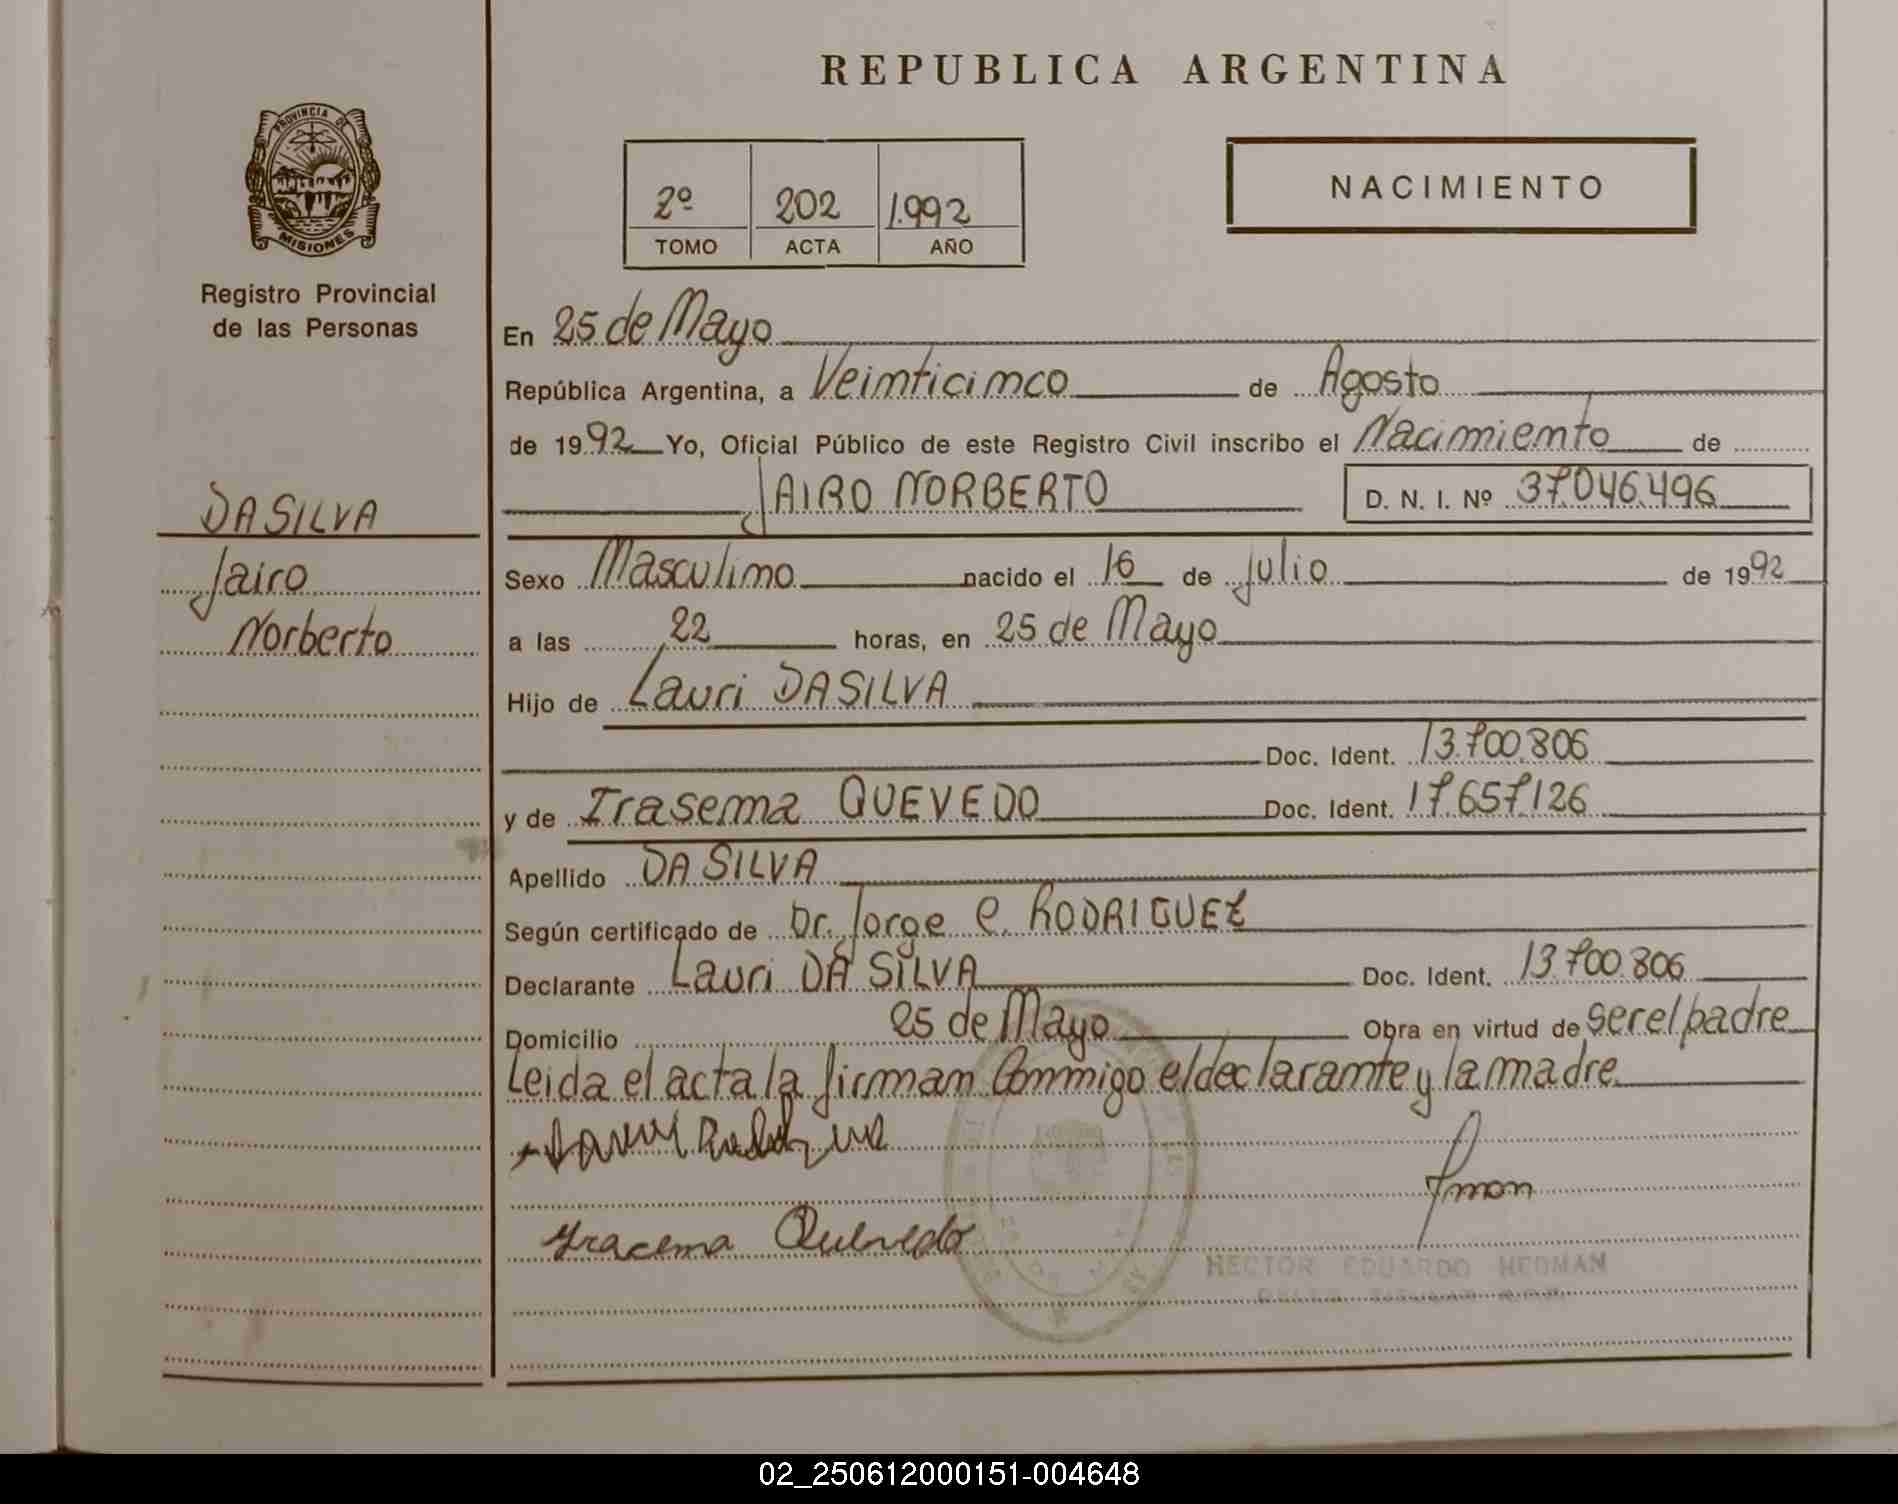 REPUBLICA ARGENTINA
PROVINCIA DE
MISIONES
Registro Provincial
de las Personas
2º 202 1.992
TOMO ACTA AÑO
NACIMIENTO
DA SILVA
Jairo
Norberto
En 25 de Mayo
República Argentina, a Veinticinco de Agosto
de 1992 Yo, Oficial Público de este Registro Civil inscribo el Nacimiento de
JAIRO NORBERTO D. N. I. Nº 37.046.496
Sexo Masculino nacido el 16 de julio de 1992
a las 22 horas, en 25 de Mayo
Hijo de Lauri DA SILVA
Doc. Ident. 13.700.806
y de Irasema QUEVEDO Doc. Ident. 17.657.126
Apellido DA SILVA
Según certificado de Dr. Jorge C. RODRIGUEZ
Declarante Lauri DA SILVA Doc. Ident. 13.700.806
Domicilio 25 de Mayo Obra en virtud de ser el padre
Leida el acta la firman Conmigo el declarante y la madre
Yracema Quevedo
HECTOR EDUARDO HEDMAN
02_250612000151-004648